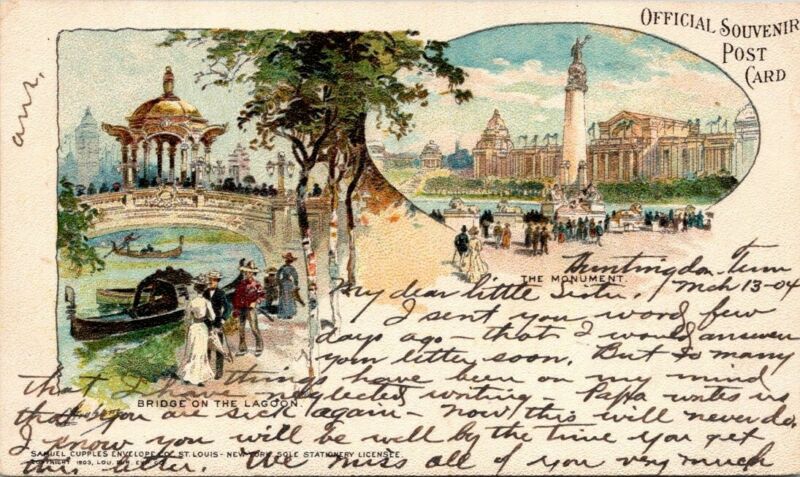 OFFICIAL SOUVENIR
POST
CARD
ans,
THE MONUMENT.
Huntingdon Tenn
Mch 13-04
My dear little Sister,
I sent you word few
days ago - that I would answer
your letter soon. But so many
things have been on my mind
that I neglected writing - Papa writes us
that you are sick again - now this will never do.
BRIDGE ON THE LAGOON.
I know you will be well by the time you get
SAMUEL CUPPLES ENVELOPE CO. ST. LOUIS - NEW YORK SOLE STATIONERY LICENSEE.
COPYRIGHT 1903, LOU. PUR. EXP. CO.
this letter. We miss all of you very much